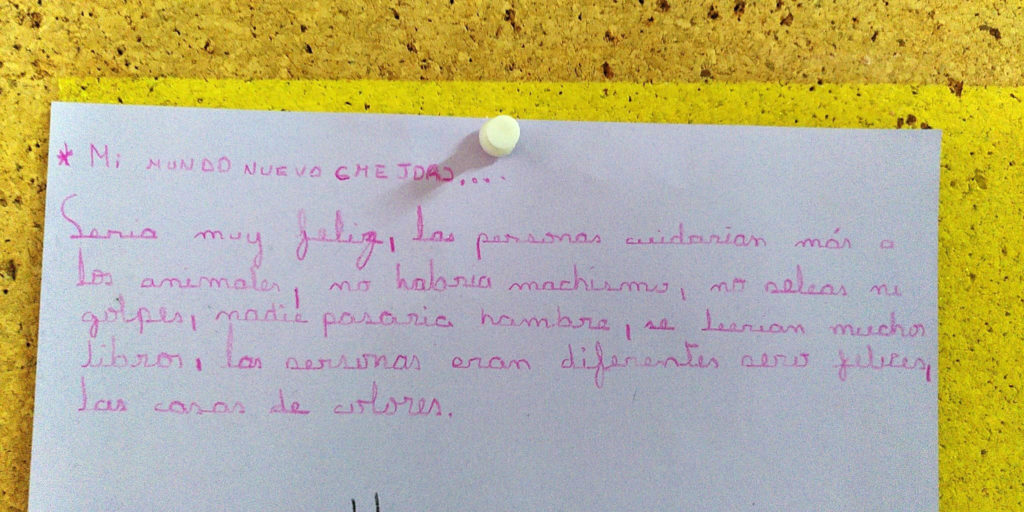 * Mi MUNDO NUEVO (MEJOR)....
Seria muy feliz, las personas cuidarian más a
los animales, no habria machismo, no peleas ni
golpes, nadie pasaria hambre, se leerian muchos
libros, las personas eran diferentes pero felices,
las casas de colores.